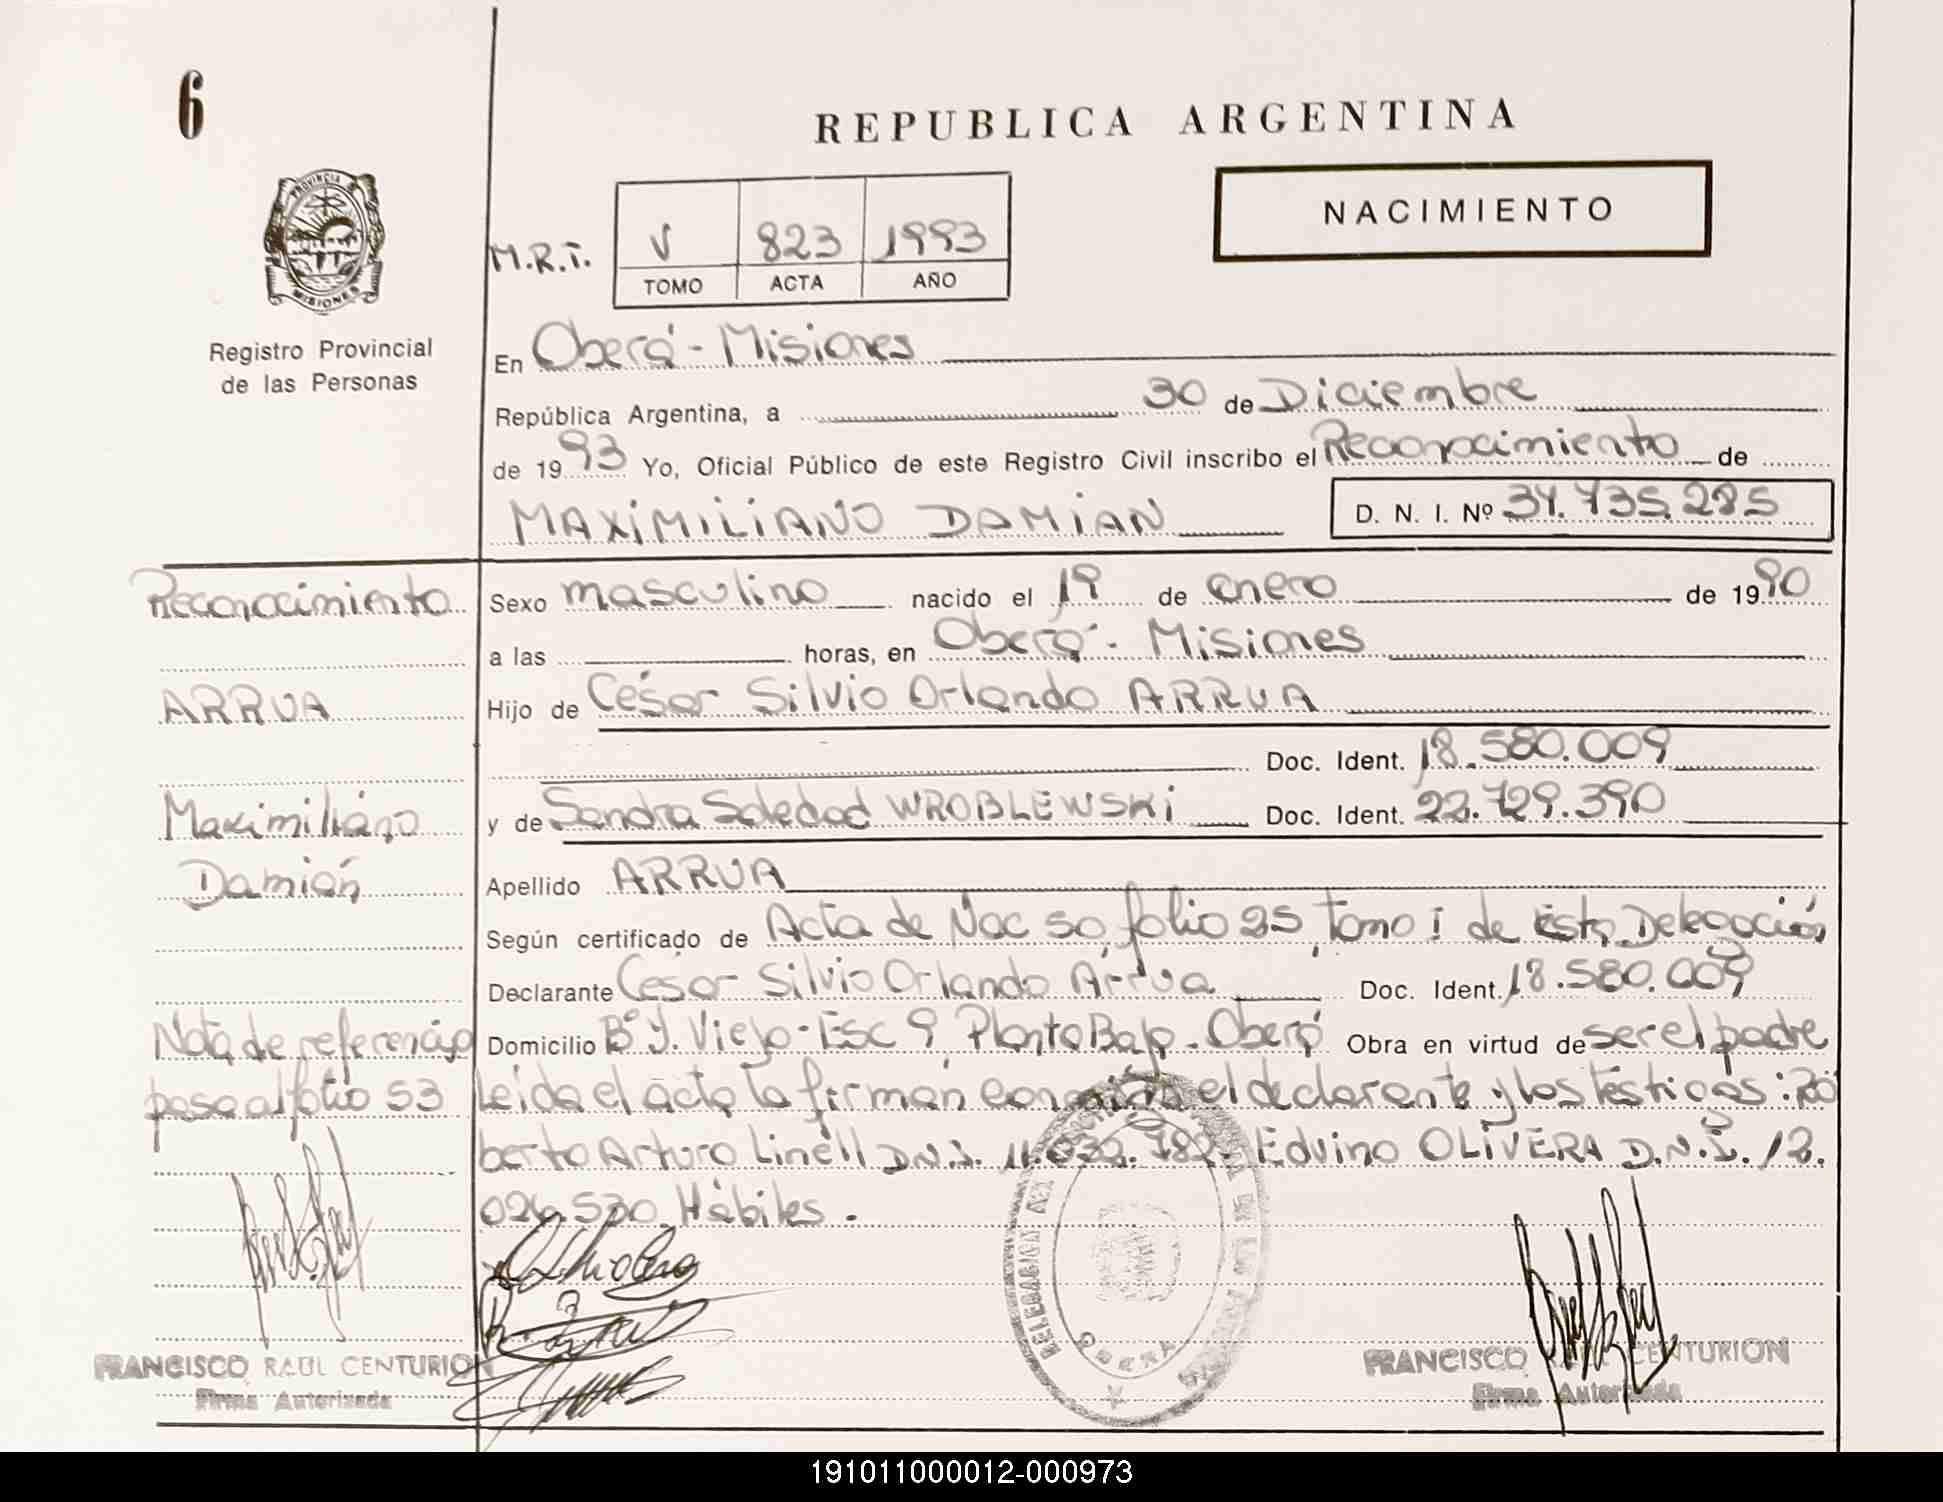 6
REPUBLICA ARGENTINA
NACIMIENTO
PROVINCIA
MISIONES
Registro Provincial
de las Personas
M.R.T. V 823 1993
TOMO ACTA AÑO
En Oberá - Misiones
República Argentina, a 30 de Diciembre
de 1993 Yo, Oficial Público de este Registro Civil inscribo el Reconocimiento de
MAXIMILIANO DAMIAN D. N. I. Nº 34.735.285
Reconocimiento
ARRUA
Maximiliano
Damián
Nota de referencia
pasa al folio 53
Sexo masculino nacido el 19 de enero de 1990
a las horas, en Oberá - Misiones
Hijo de César Silvio Orlando ARRUA
Doc. Ident. 18.580.009
y de Sandra Soledad WROBLEWSKI Doc. Ident. 22.729.390
Apellido ARRUA
Según certificado de Acta de Nac 50, folio 25, tomo I de esta Delegación
Declarante César Silvio Orlando Arrua Doc. Ident. 18.580.009
Domicilio Bº Y. Viejo - Esc 9 Planta Baja - Oberá Obra en virtud de ser el padre
Leída el acta la firman conmigo el declarante y los testigos: Ro
berto Arturo Linell D.N.I. 11.032.782. Edvino OLIVERA D.N.I. 12.
026.530 Hábiles.
DELEGACION
OBERA
FRANCISCO RAUL CENTURION
Firma Autorizada
FRANCISCO CENTURION
Firma Autorizada
191011000012-000973